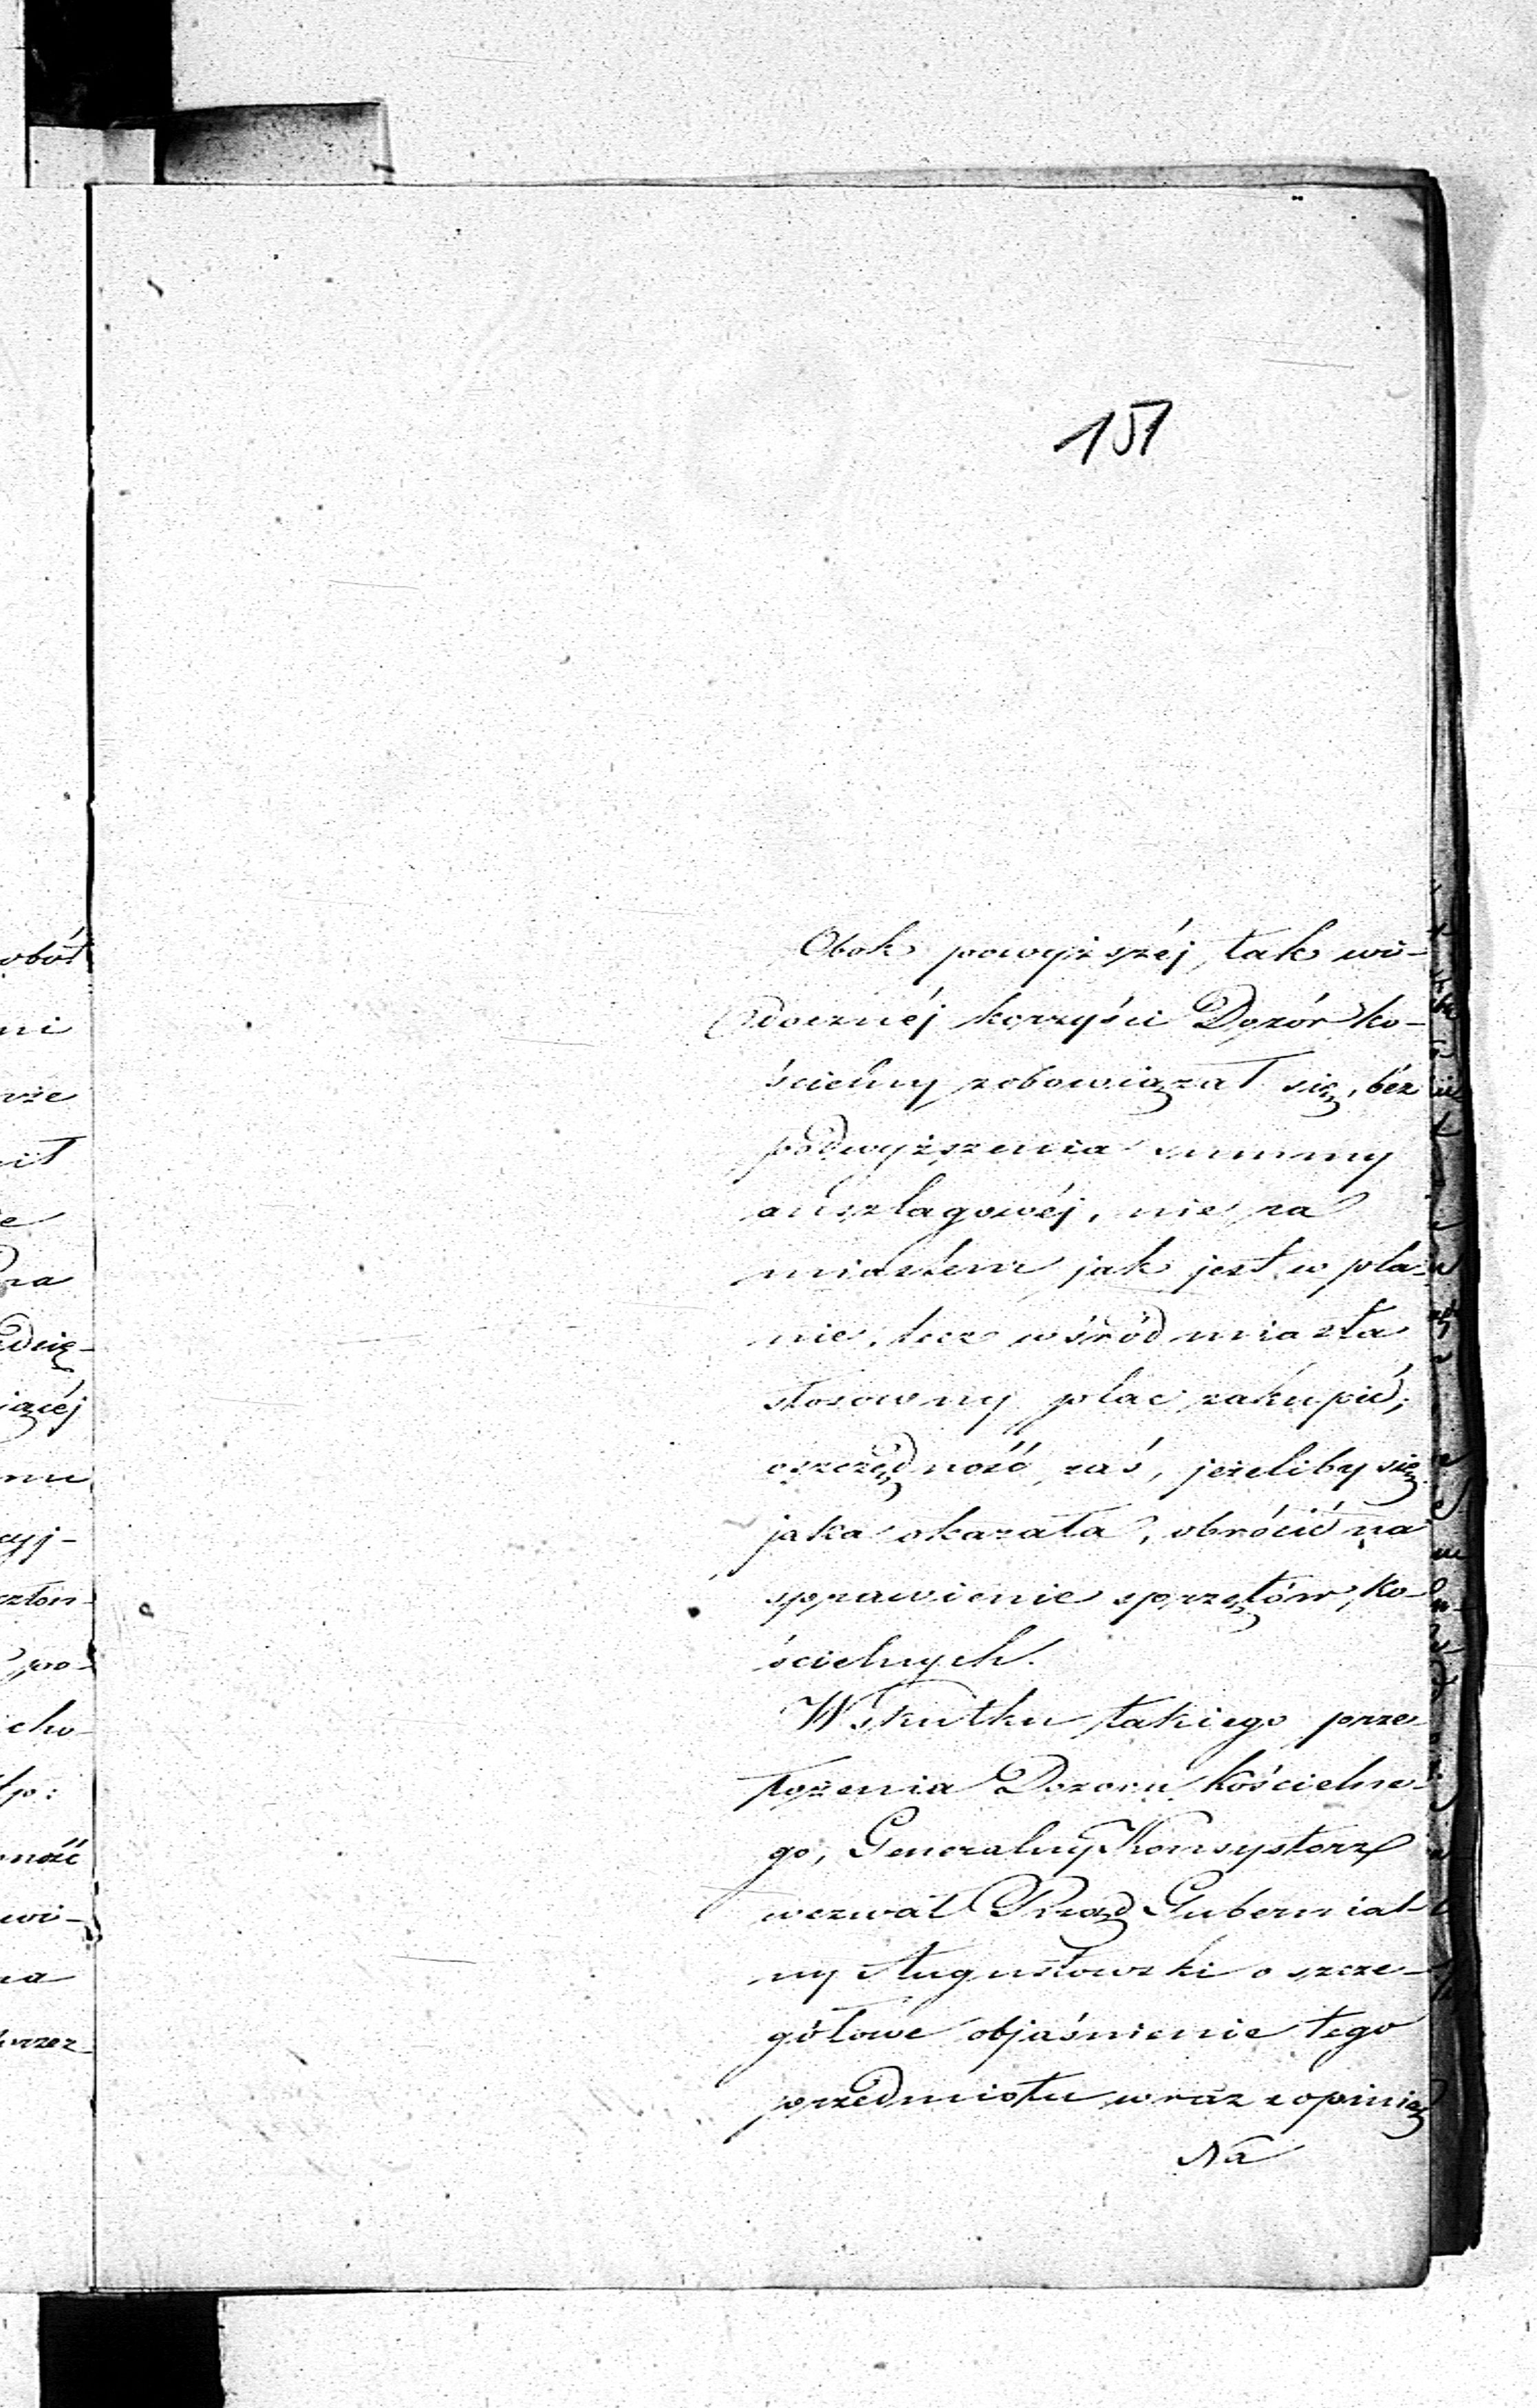 151
Obok powyższéj, tak wi-
docznéj korzyści Dozór ko-
ścielny zobowiązał się, bez
podwyższenia summy
anszlagowéj, nie za
miastem jak jest w pla-
nie, lecz wśród miasta
stosowny plac zakupić;
oszczędność zaś, jeżeliby się
jaka okazała, obrócić na
sprawienie sprzętów ko-
ścielnych.
W skutku takiego prze
łożenia Dozoru kościelne-
go, Generalny Konsystorz
wezwał Rząd Gubernial-
ny Augustowski o szcze-
gółowe objaśnienie tego
przedmiotu wraz z opinią
Na